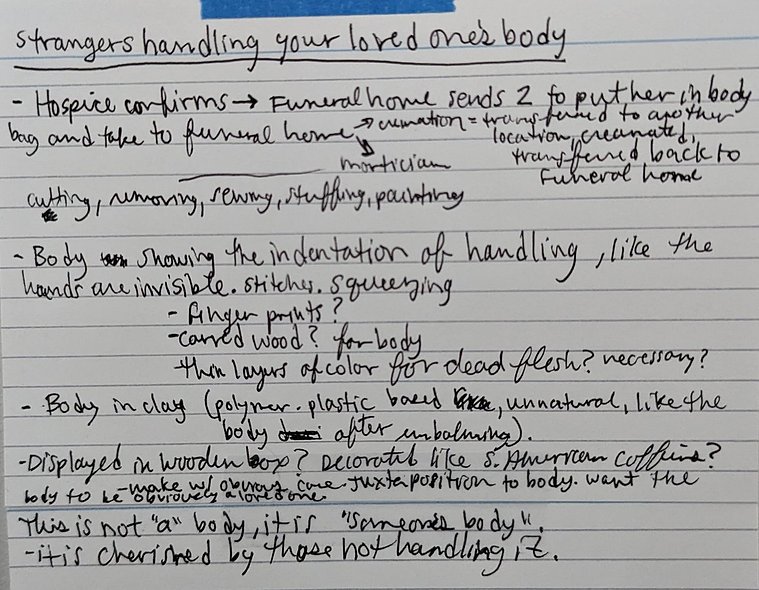 Strangers handling your loved one's body
- Hospice confirms → Funeral home sends 2 to put her in body
bag and take to funeral home → cremation = transferred to another
location, creamated,
transferred back to
Funeral home
↘ mortician
cutting, removing, sewing, stuffing, painting
- Body showing the indentation of handling, like the
hands are invisible. stitches. squeezing
- finger prints?
- carved wood? for body
- thin layers of color for dead flesh? necessary?
- Body in clay (polymer. plastic based, unnatural, like the
body after embalming).
- Displayed in wooden box? Decorated like S. American coffins?
- make w/ obvious care. Juxtaposition to body. want the
body to be obviously a loved one.
This is not "a" body, it is "someone's body".
- it is cherished by those not handling it.